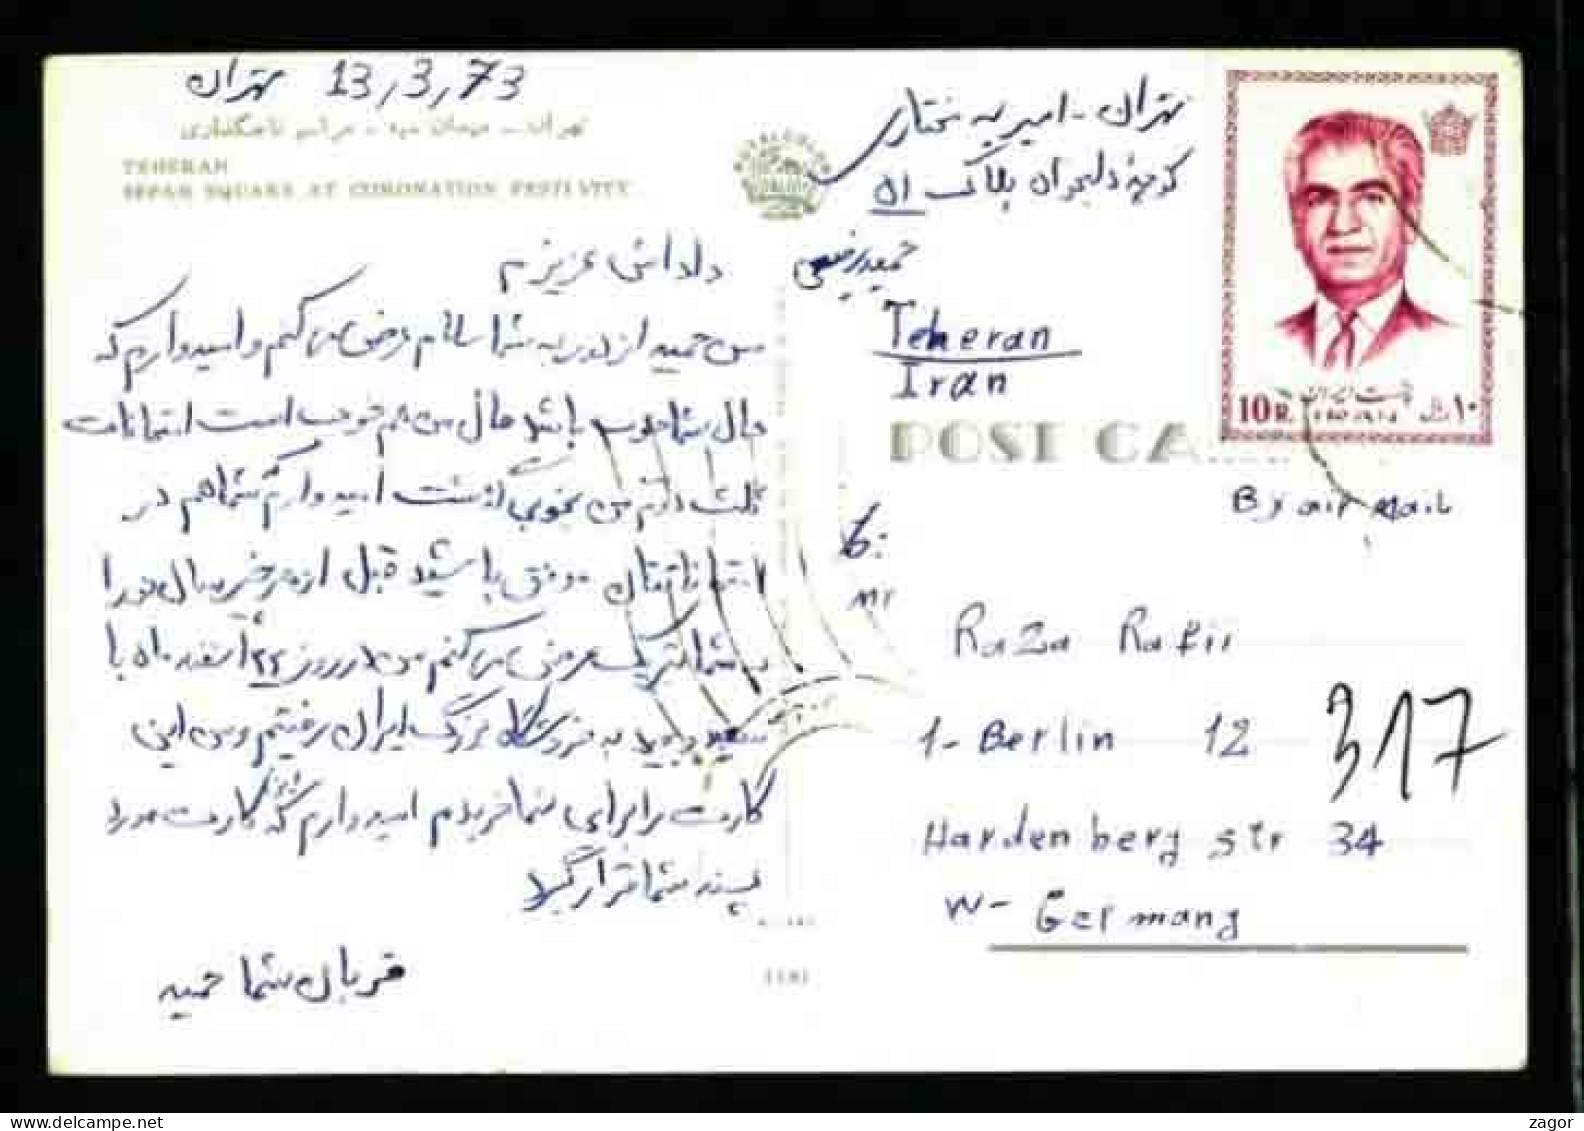 تهران 13,3,73
تهران - میدان سپه - مراسم تاجگذاری
TEHERAN
SEPAH SQUARE AT CORONATION FESTIVITY
داداش عزیزم
من حمید از دور به شما سلام عرض می کنم و امیدوارم که
حال شما خوب باشد حال من هم خوب است امتحانات
ثلث دوم من بخوبی گذشت امیدوارم شما هم در
امتحاناتتان موفق باشید قبل از هر چیز سال نو را
به شما تبریک عرض می کنم من در روز ۲۲ اسفند ماه با
سعید به فروشگاه بزرگ ایران رفتیم و من این
کارت را برای شما خریدم امیدوارم که این کارت مورد
پسند شما قرار گیرد
قربان شما حمید
تهران - امیریه مختاری
کوچه دلجوان پلاک ۵۱
حمید رفیعی
Teheran
Iran
POST CA
10 R. ۱۰
By air Mail
To:
Mr
Raza Rafii
1- Berlin 12
317
Hardenberg str 34
W- Germany
www.delcampe.net
zagor